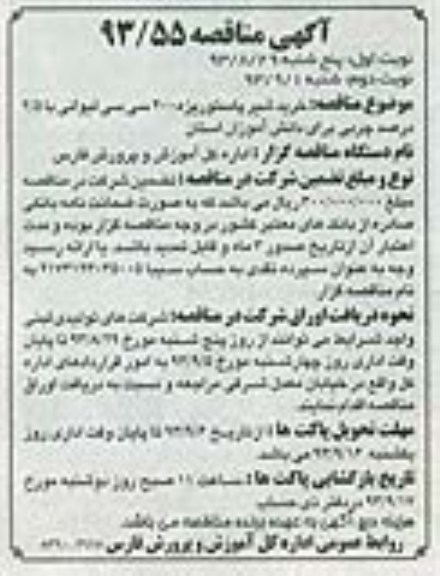 آگهی مناقصه ۹۳/۵۵
نوبت اول: پنج شنبه ۹۳/۸/۲۹
نوبت دوم: شنبه ۹۳/۹/۱
موضوع مناقصه: خرید شیر پاستوریزه ۲۰۰ سی سی لیوانی با ۲/۵
درصد چربی برای دانش آموزان استان
نام دستگاه مناقصه گزار: اداره کل آموزش و پرورش فارس
نوع و مبلغ تضمین شرکت در مناقصه: تضمین شرکت در مناقصه
مبلغ ۳۰۰/۰۰۰/۰۰۰ ریال می باشد که به صورت ضمانت نامه بانکی
صادره از بانک های معتبر کشور در وجه مناقصه گزار بوده و مدت
اعتبار آن از تاریخ صدور ۳ ماه و قابل تمدید باشد. یا ارائه رسید
وجه به عنوان سپرده نقدی به حساب سیبا به
نام مناقصه گزار
نحوه دریافت اوراق شرکت در مناقصه: شرکت های تولیدی لبنی
واجد شرایط می توانند از روز پنج شنبه مورخ ۹۳/۸/۲۹ تا پایان
وقت اداری روز چهارشنبه مورخ ۹۳/۹/۵ به امور قراردادهای اداره
کل واقع در خیابان معدل شرقی مراجعه و نسبت به دریافت اوراق
مناقصه اقدام نمایند.
مهلت تحویل پاکت ها: از تاریخ ۹۳/۹/۶ تا پایان وقت اداری روز
یکشنبه ۹۳/۹/۱۶ می باشد.
تاریخ بازگشایی پاکت ها: ساعت ۱۱ صبح روز دوشنبه مورخ
۹۳/۹/۱۷ در دفتر ذی حساب
هزینه درج آگهی به عهده برنده مناقصه می باشد.
روابط عمومی اداره کل آموزش و پرورش فارس